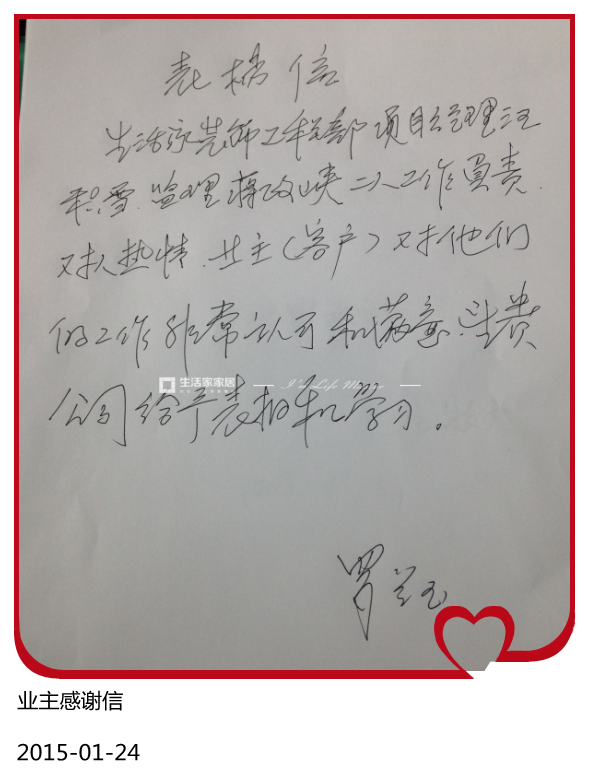 表扬信
生活家装饰工程部项目经理汪
积雪.监理蒋政峡二人工作负责.
对人热情.业主(客户)对他们
的工作非常认可和满意.望贵
公司给予表扬和学习。
生活家家居
I'm Life Money
罗兰玉
业主感谢信
2015-01-24